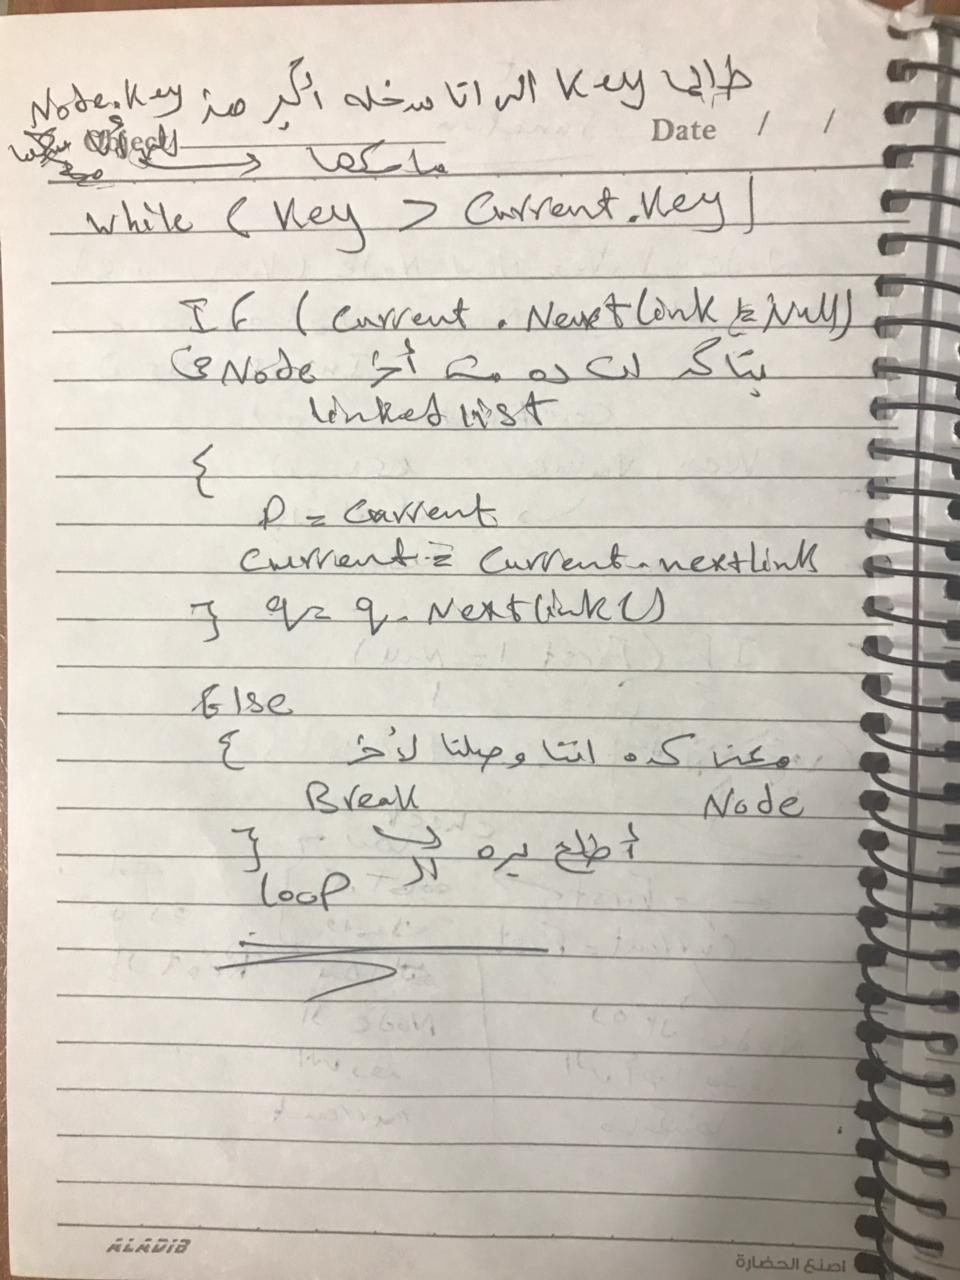 طالما Key الى انا مدخله اكبر من Node.Key
Date / /
while ( Key > Current.Key )
IF ( Current . Next link != Null)
بتأكد ان ده مش أخر Node في
linked list
{
P = Current
Current = Current . next link
} q = q . Next link ( )
Else
{ معنى كده اننا وصلنا لأخر
Break Node
} أطلع بره
ال loop
ALADIB
اصنع الحضارة